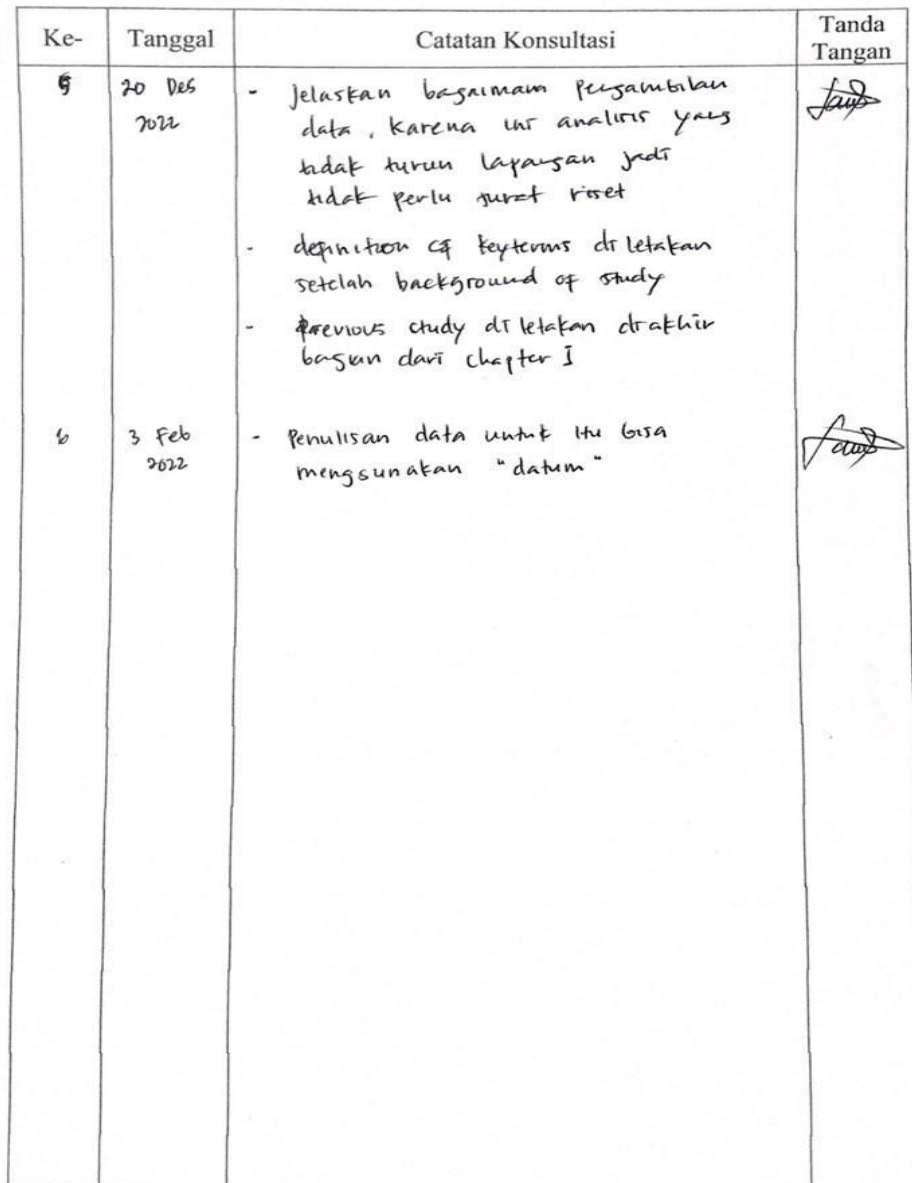 Ke- Tanggal Catatan Konsultasi Tanda Tangan
5 20 Des 2022 - jelaskan bagaimana pengambilan
data, karena ini analisis yang
tidak turun lapangan jadi
tidak perlu surat riset
- definition of keyterms di letakan
setelah background of study
- Previous study di letakan diakhir
bagian dari chapter I
6 3 Feb 2022 - Penulisan data untuk itu bisa
menggunakan "datum"